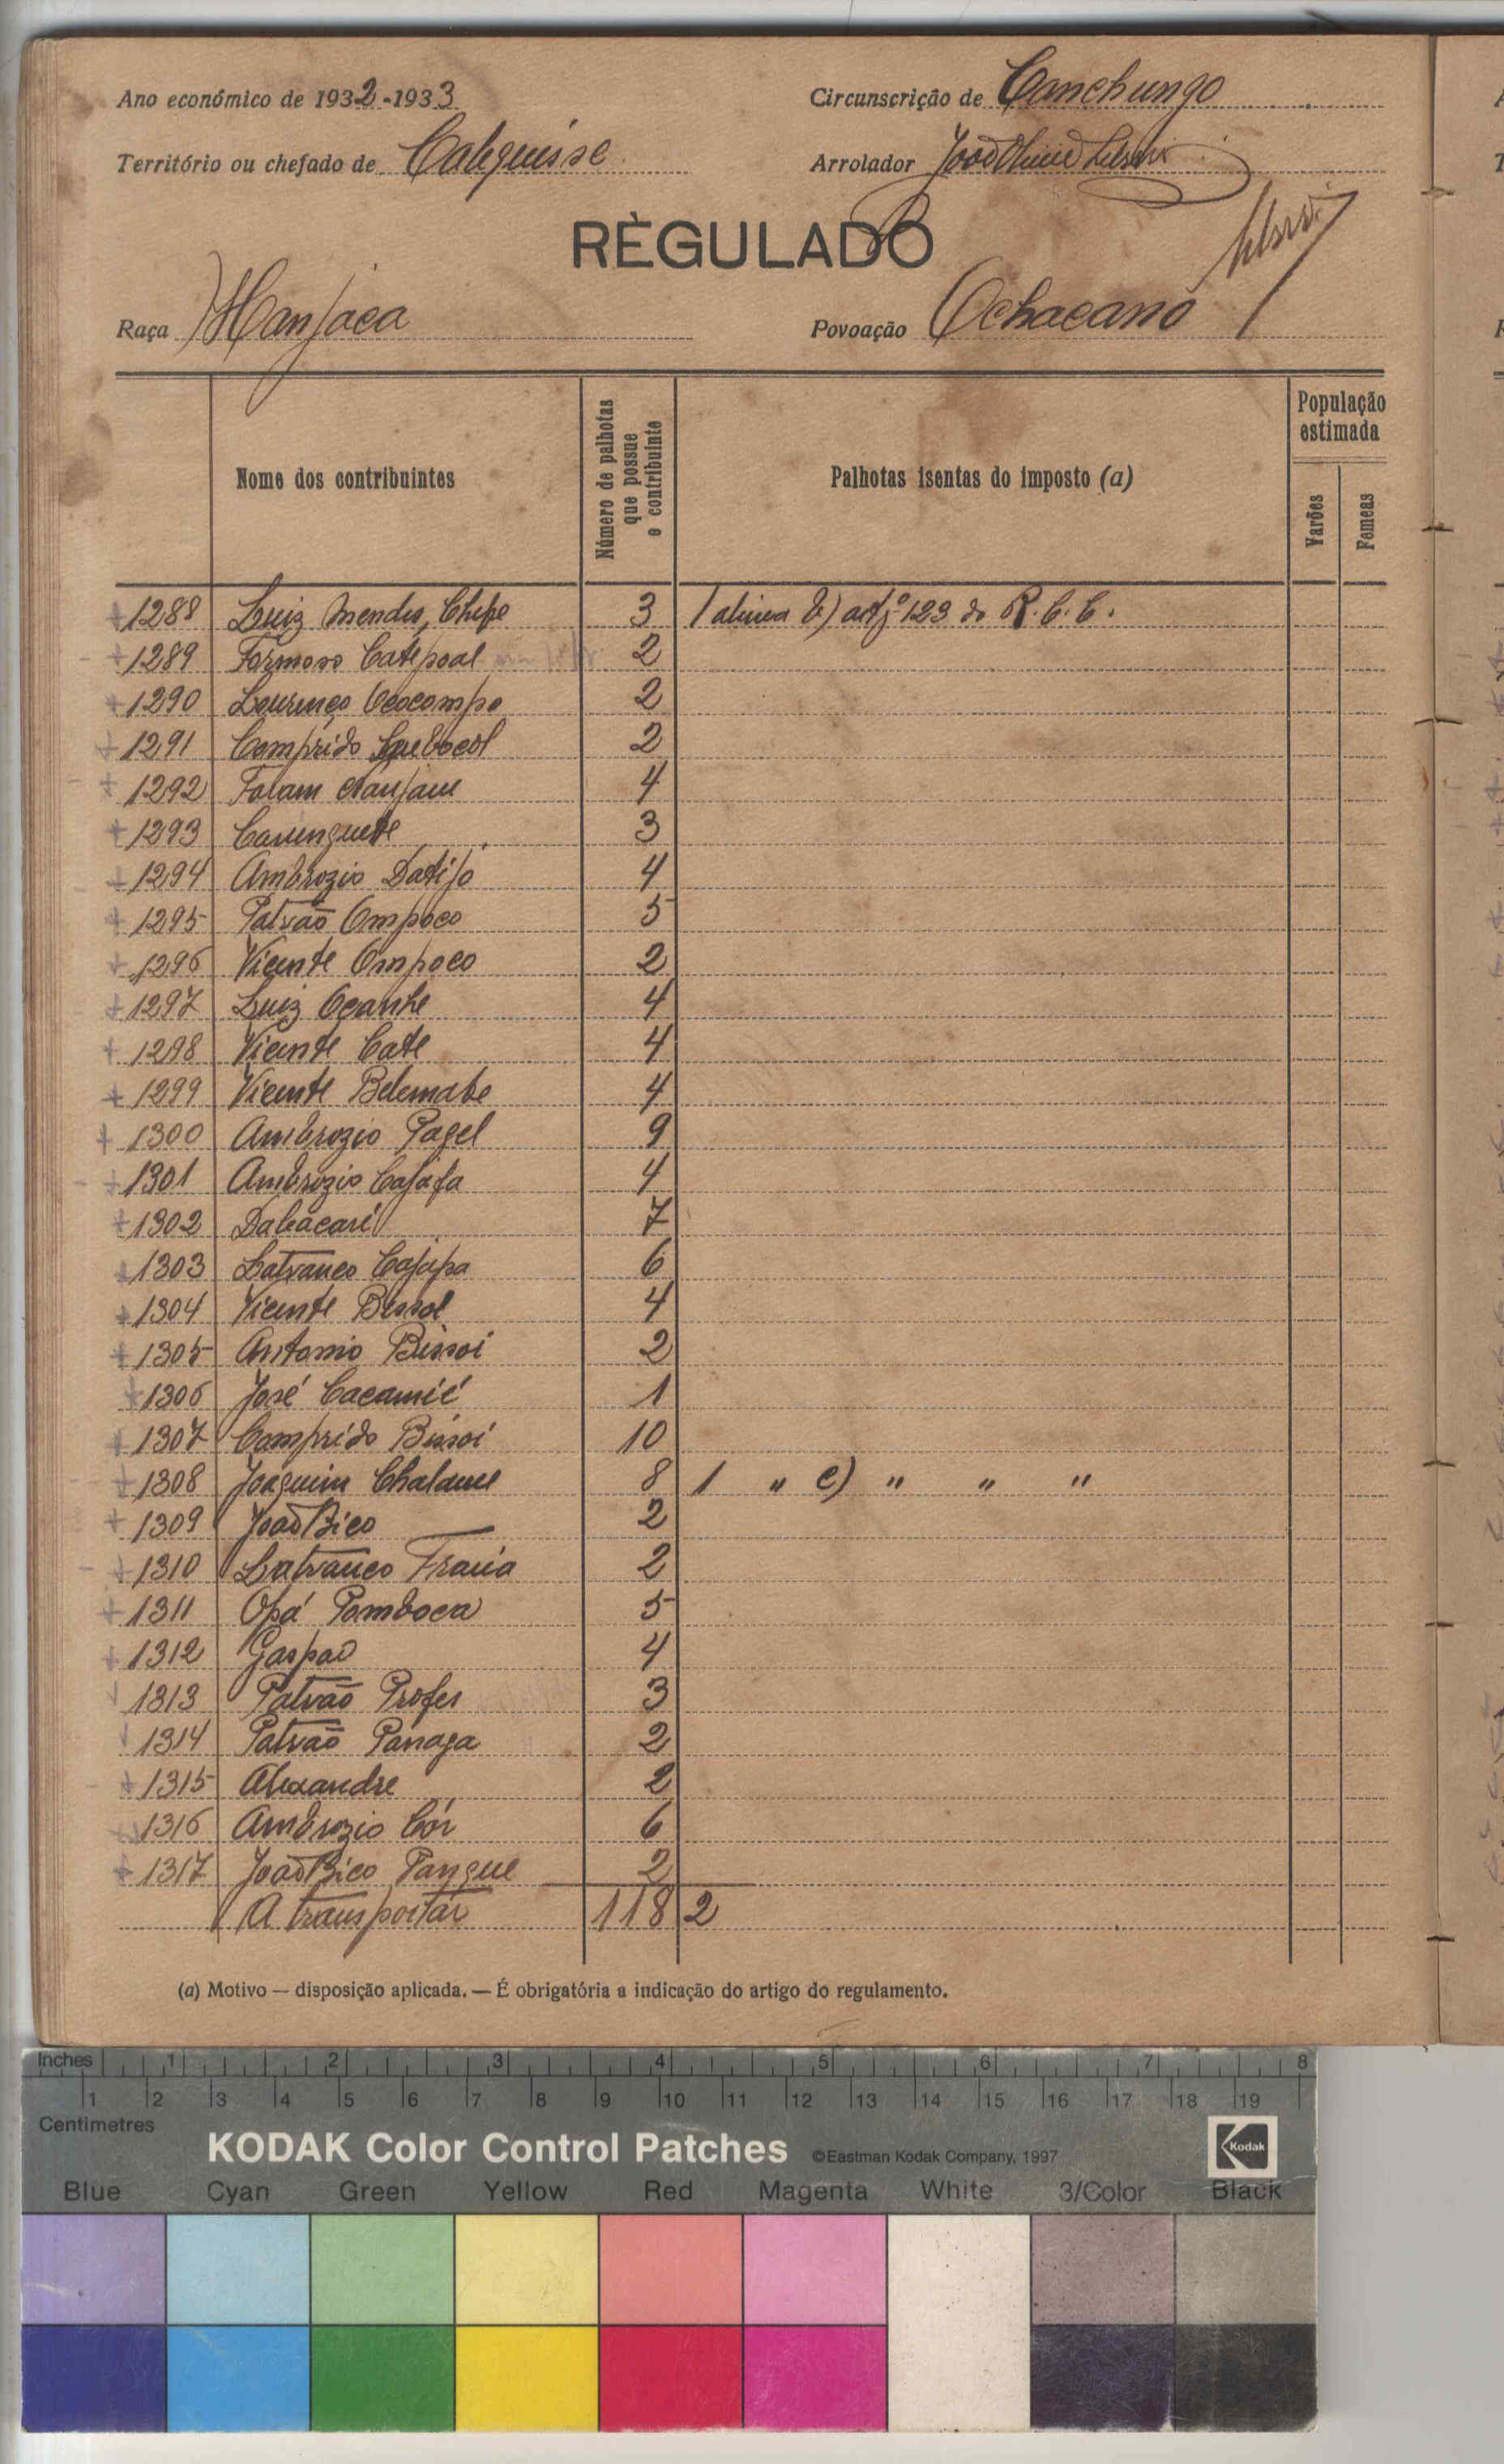 Ano económico de 1932-1933
Circunscrição de Canchungo
Território ou chefado de Calequisse
Arrolador João
RÈGULADO
Raça Manjaca
Povoação Ochacano
Nome dos contribuintes
Número de palhotas que possue o contribuinte
Palhotas isentas do imposto (a)
População estimada
Varões
Femeas
1288 Luiz Mendes, Chefe 3 1 alinea b) artº 123 do R.C.C.
1289 Formoso Catepoal 2
1290 Lourenço Ococompo 2
1291 Comprido 2
1292 Falam Naujaue 4
1293 Caunguete 3
1294 Ambrozio Datijo 4
1295 Patrão Ompoco 5
1296 Vicente Ompoco 2
1297 Luiz Oçanhe 4
1298 Vicente Cate 4
1299 Vicente Belemabe 4
1300 Ambrozio Pagel 9
1301 Ambrozio Cajafa 4
1302 Dabacari 7
1303 Latranco Cajapa 6
1304 Vicente Bissol 4
1305 Antonio Bissoi 2
1306 José Cacamié 1
1307 Comprido Bissoi 10
1308 Joaquim Chalame 8 1 " c) " " "
1309 João Bico 2
1310 Latranco Francia 2
1311 Opá Pomboca 5
1312 Gaspar 4
1313 Patrão Profes 3
1314 Patrão Panaga 2
1315 Alexandre 2
1316 Ambrozio Cór 6
1317 João Bico Pangue 2
A transportar 118 2
(a) Motivo — disposição aplicada. — É obrigatória a indicação do artigo do regulamento.
Inches 1 2 3 4 5 6 7 8
1 2 3 4 5 6 7 8 9 10 11 12 13 14 15 16 17 18 19
Centimetres
KODAK Color Control Patches ©Eastman Kodak Company, 1997 Kodak
Blue Cyan Green Yellow Red Magenta White 3/Color Black